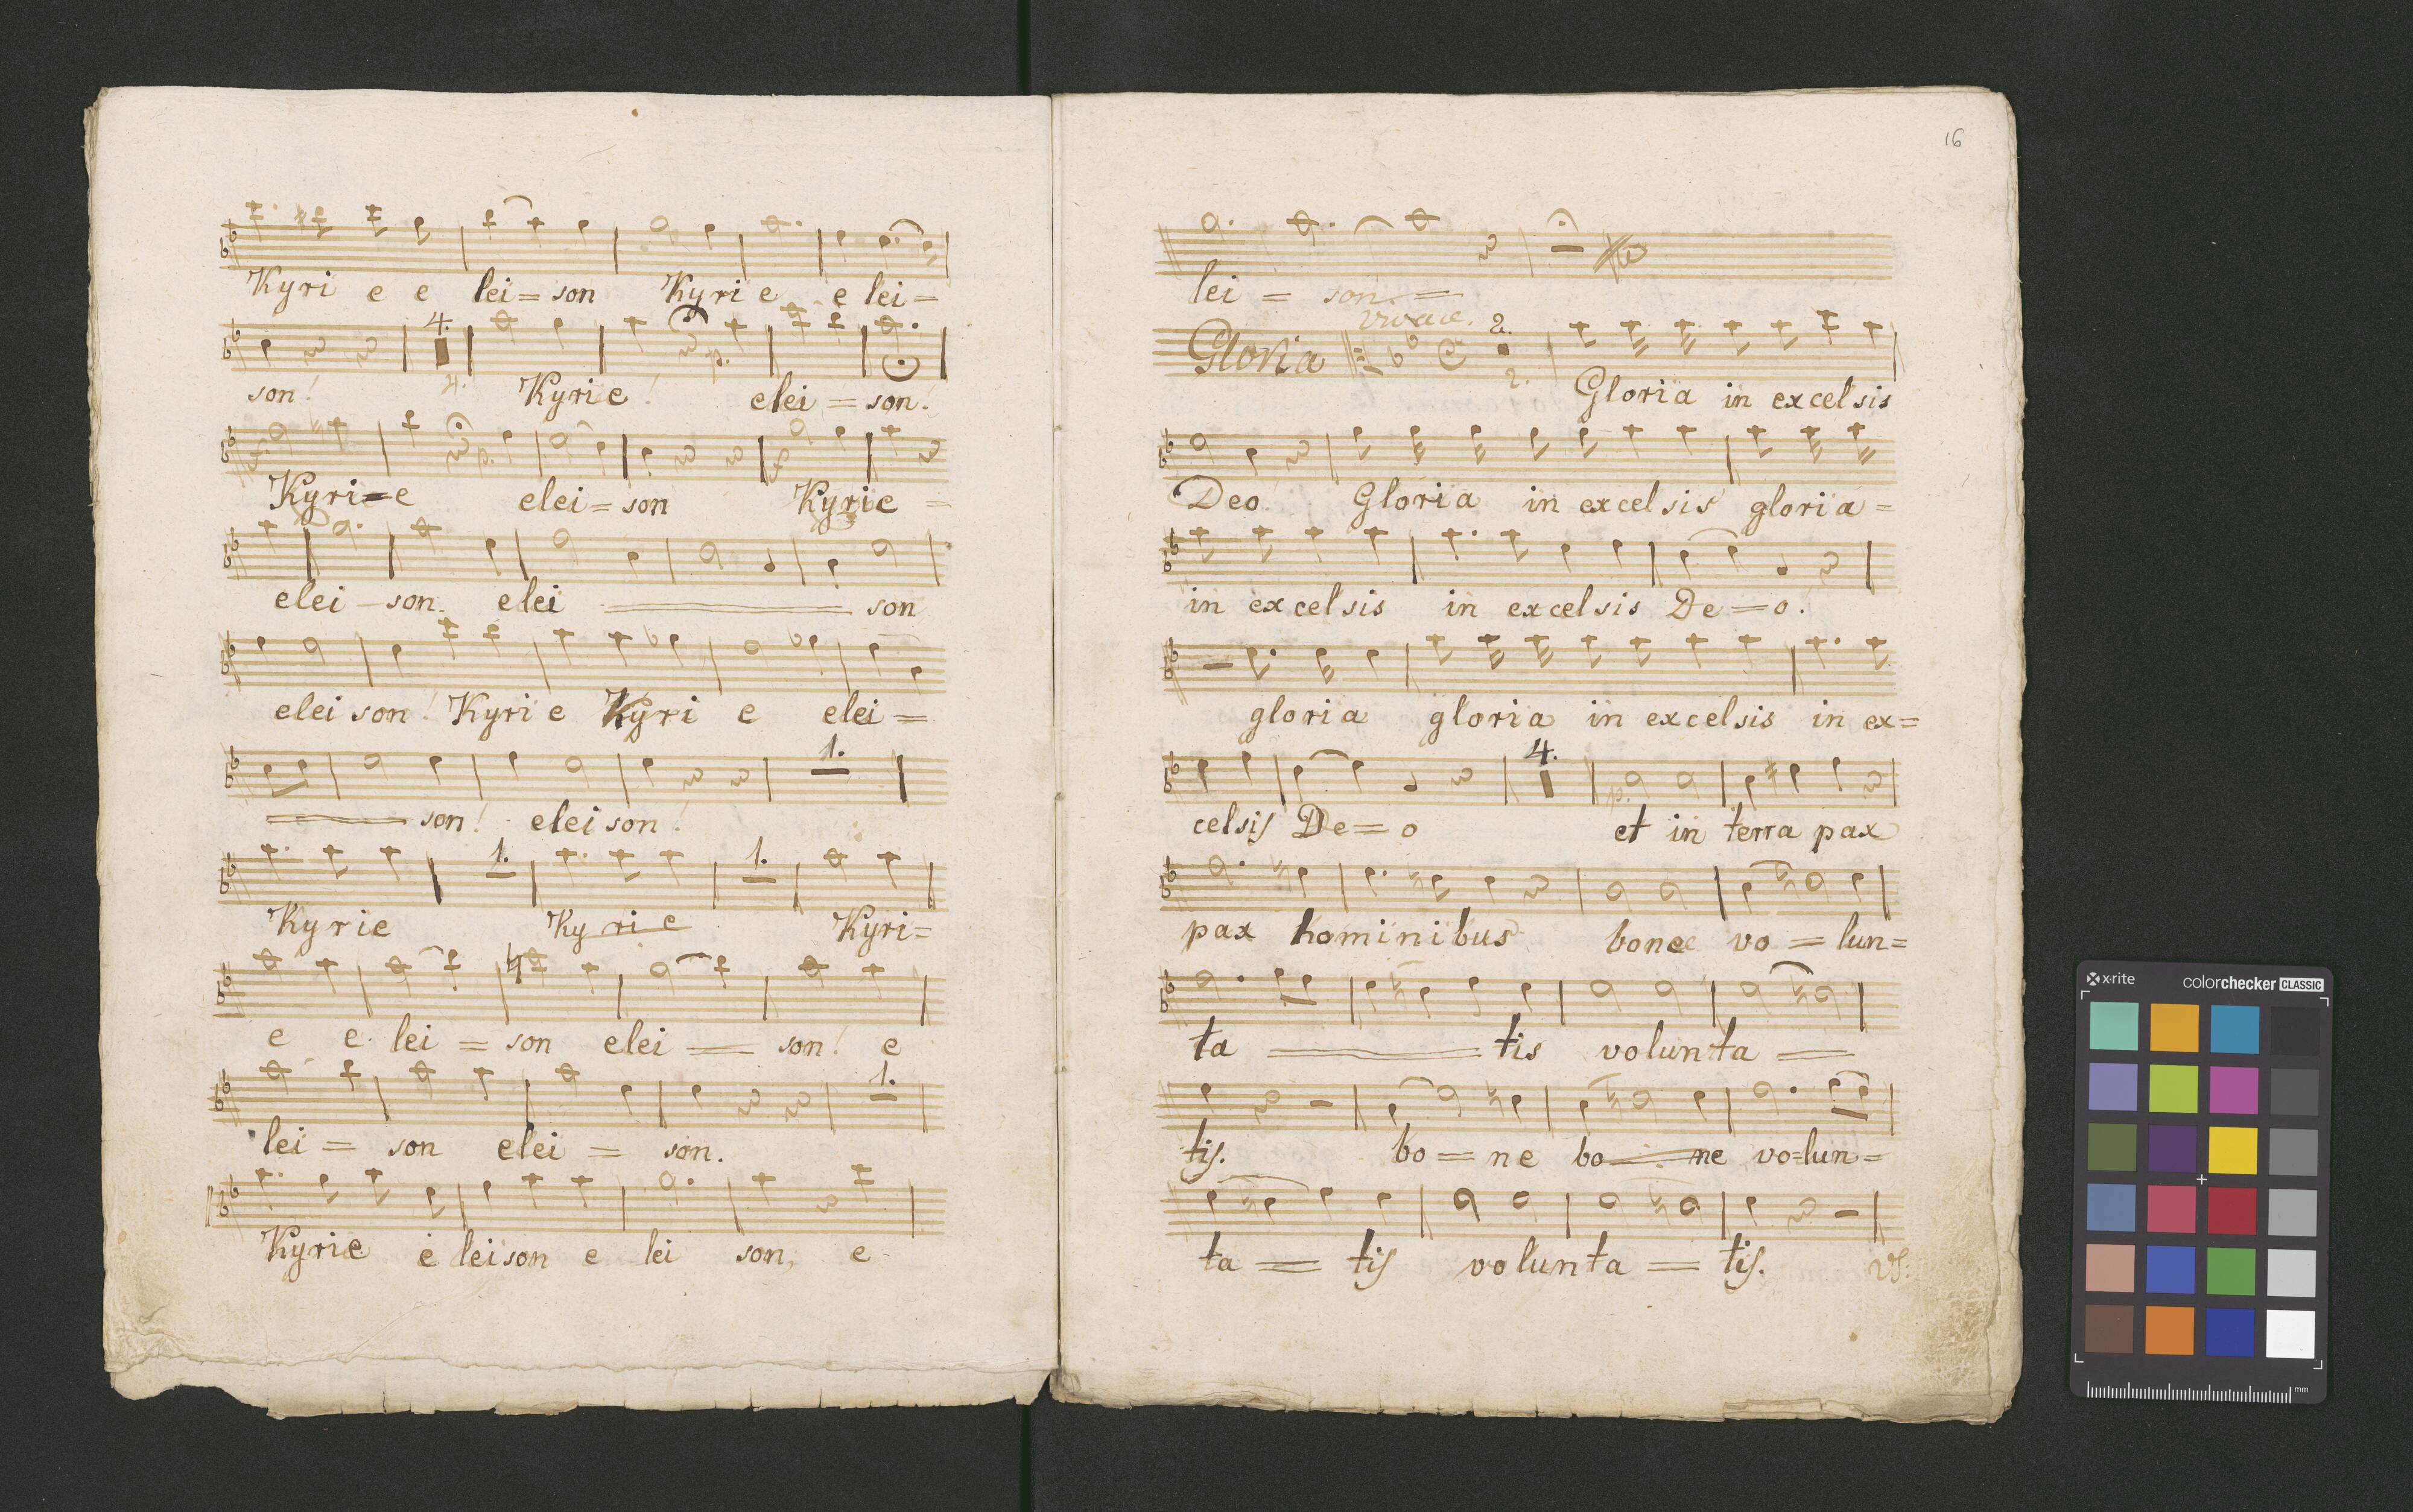 Kyri e e lei = son Kyri e e lei =
4.
son! 4. Kyrie! elei = son!
Kyri = e elei = son Kyrie =
elei - son. elei = son
elei son! Kyri e Kyri e elei =
1.
= son! elei son!
1. 1.
Kyrie Ky ri e Kyri =
e e lei = son elei = son! e
1.
lei = son elei = son.
Kyrie e leison e lei son, e
16
lei = son. =
Vivace. 2.
Gloria 2. Gloria in excelsis
Deo. Gloria in excelsis gloria =
in excelsis in excelsis De = o.
gloria gloria in excelsis in ex =
4.
celsis De = o et in terra pax
pax hominibus bonae vo = lun =
ta = tis volunta =
tis. bo = ne bo = ne vo = lun =
ta = tis volunta = tis. vs.
x·rite colorchecker CLASSIC
mm